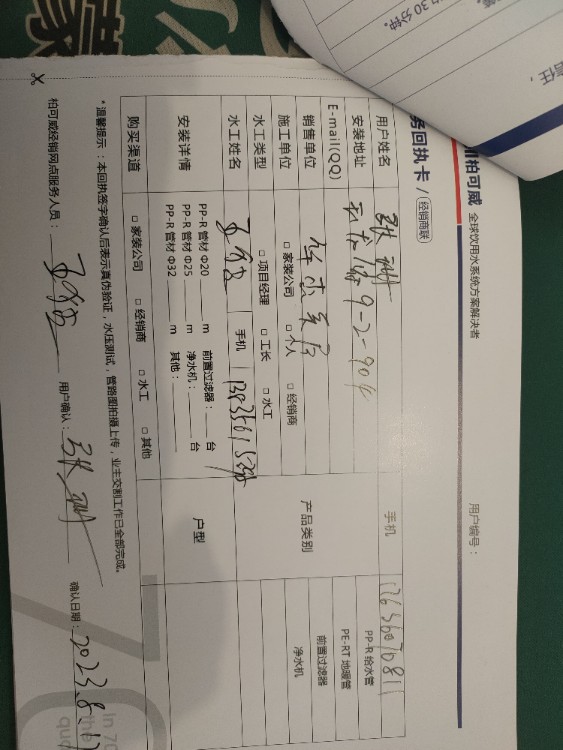 30分钟。
责任，
柏可威 全球饮用水系统方案解决者
用户编号：
务回执卡 / 经销商联
用户姓名 手机
安装地址 9-2-904
E-mail(QQ)
销售单位
产品类别
PP-R 给水管
PE-RT 地暖管
前置过滤器
净水机
施工单位 □ 家装公司 □ 个人 □ 经销商
水工类型 □ 项目经理 □ 工长 □ 水工
水工姓名 手机
安装详情
PP-R 管材 Φ20 ____ m 前置过滤器：____ 台
PP-R 管材 Φ25 ____ m 净水机：____ 台
PP-R 管材 Φ32 ____ m 其他：____
户型
购买渠道 □ 家装公司 □ 经销商 □ 水工 □ 其他
*温馨提示：本回执签字确认后表示真伪验证，水压测试，管路图拍摄上传，业主交割工作已全部完成。
柏可威经销网点服务人员： 用户确认： 确认日期：2023.8.